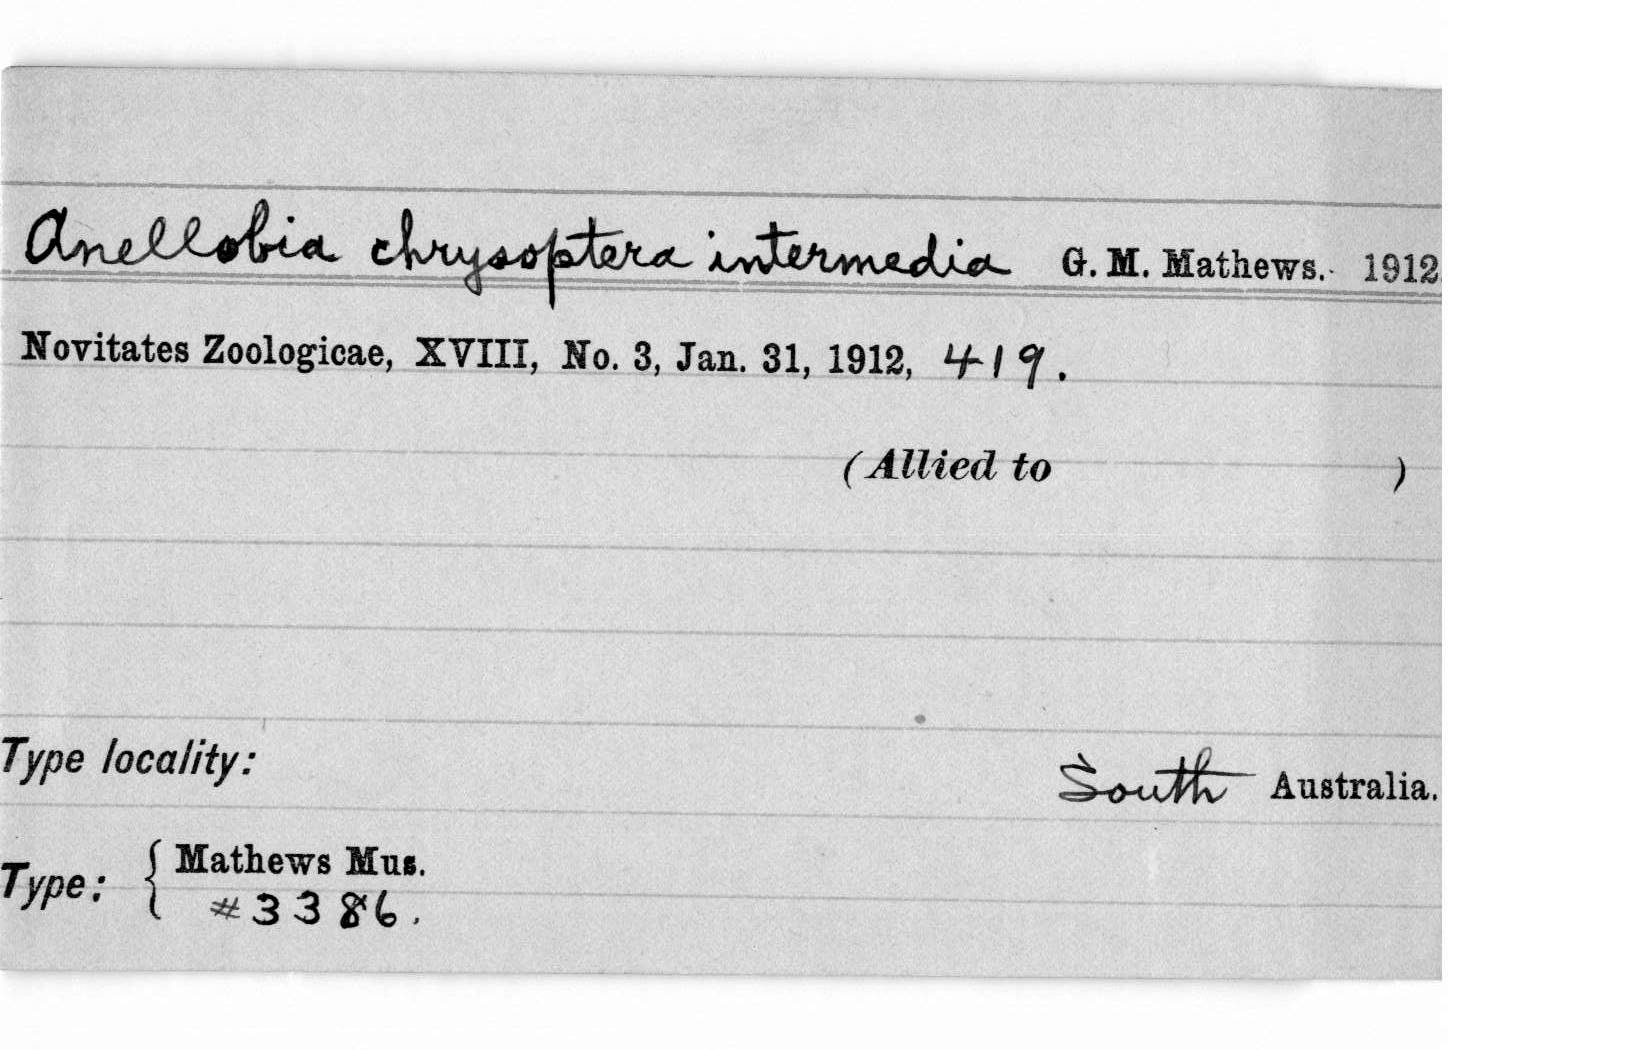 Anellobia chrysoptera intermedia G. M. Mathews. 1912.
Novitates Zoologicae, XVIII, No. 3, Jan. 31, 1912, 419.
(Allied to )
Type locality: South Australia.
Type: { Mathews Mus.
#3386.